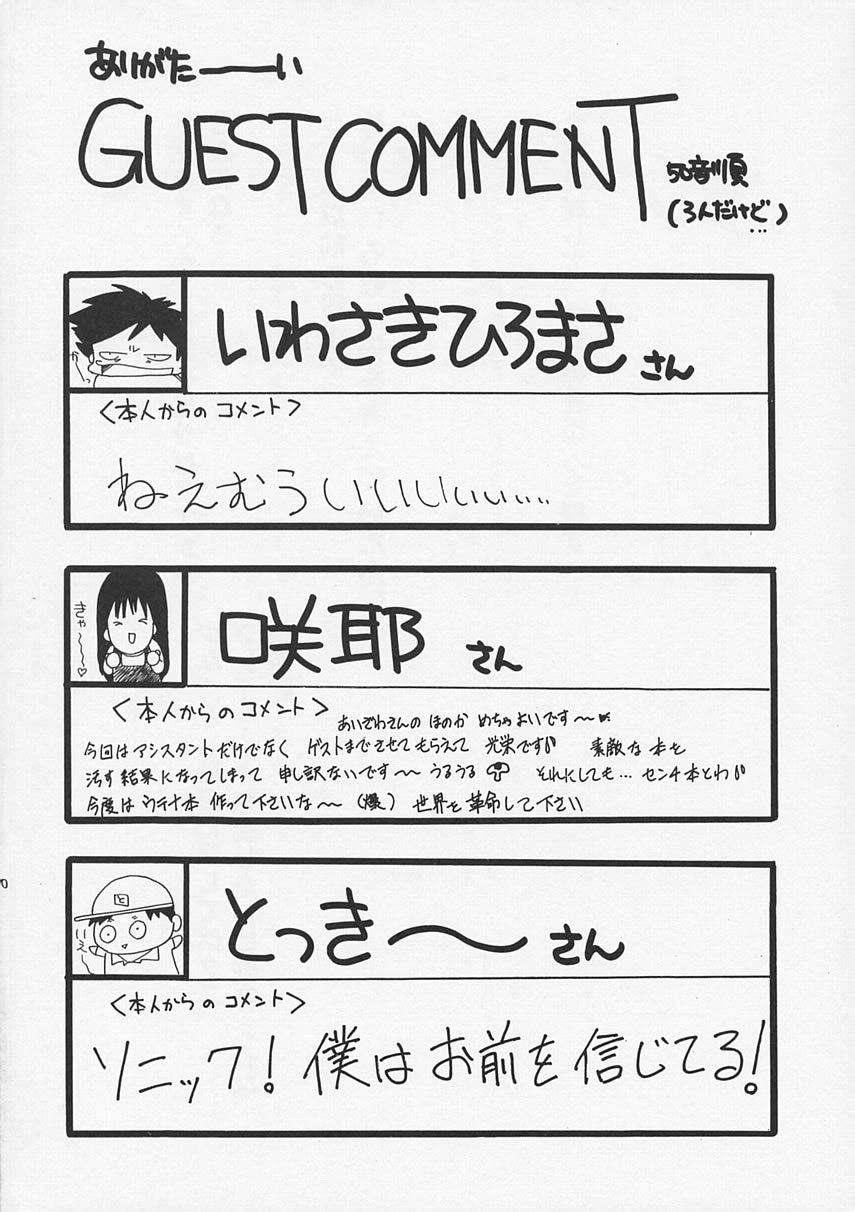 ありがたーーい
GUEST COMMENT
50音順
(3人だけど…)
かっ
いわさきひろまさ さん
<本人からの コメント>
ねえむういいいいぃぃ...
きゃ〜〜〜♡
咲耶 さん
<本人からの コメント>
あいざわさんの ほのか めちゃよいです〜
今回はアシスタントだけでなく ゲストまでさせてもらえて 光栄です 素敵な本を
汚す結果になってしまって 申し訳ないです〜 うるうる それにしても… センチ本とわ
今度は ウテナ本 作って下さいな〜 (爆) 世界を革命して下さい
と
いえー
とっき〜 さん
<本人からの コメント>
ソニック! 僕はお前を信じてる!